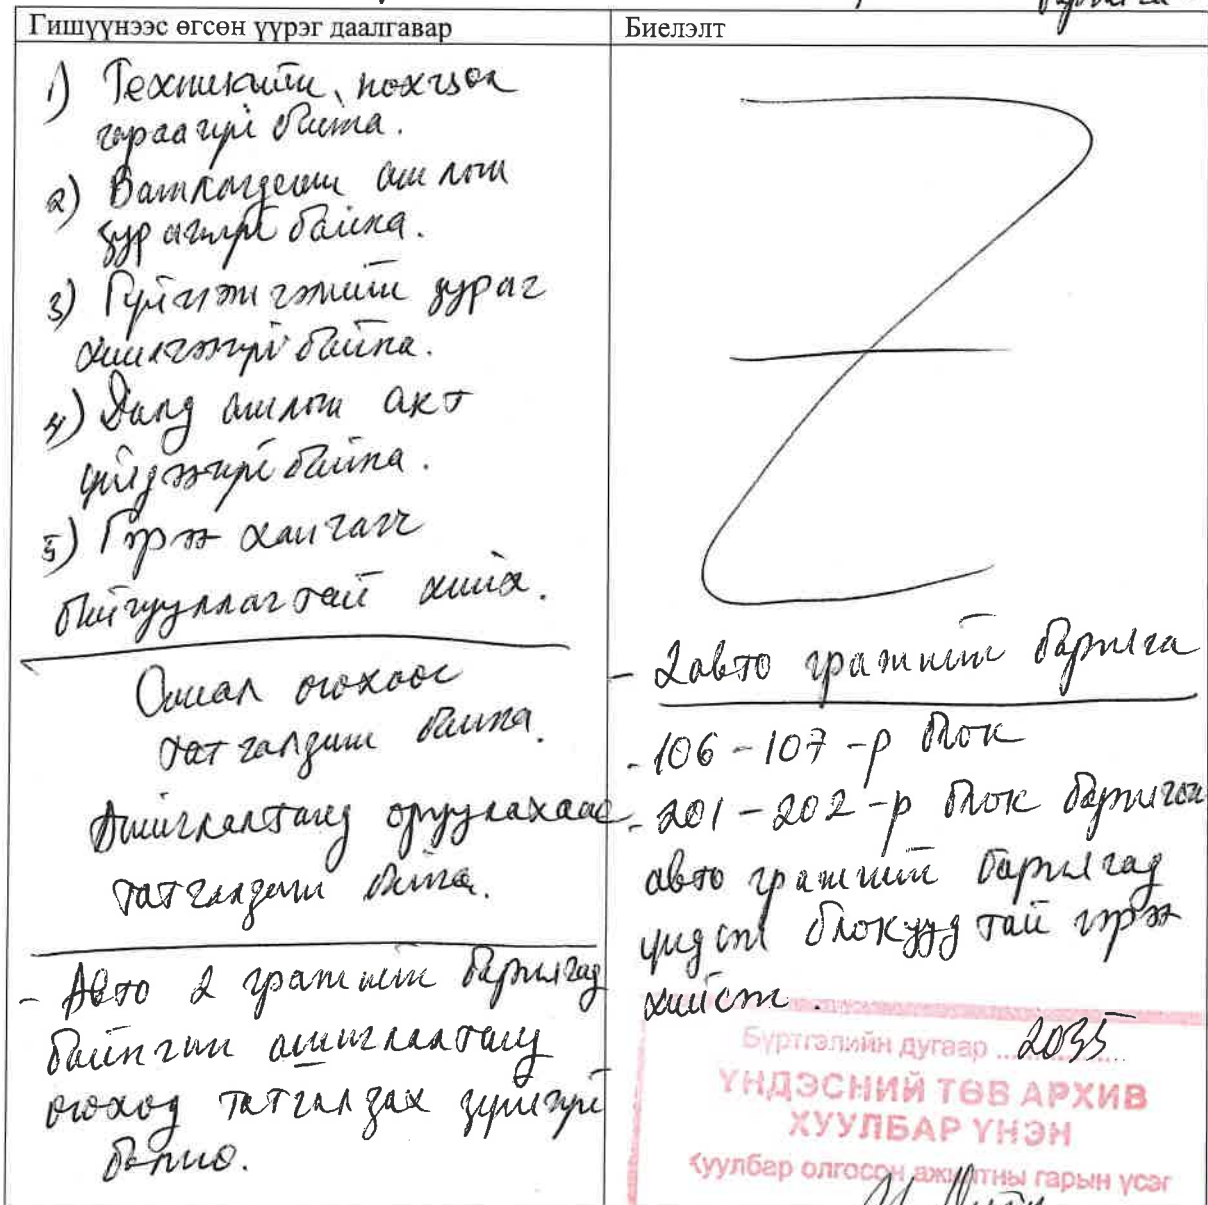 барилга
Гишүүнээс өгсөн үүрэг даалгавар
Биелэлт
1) Техникийн нөхцөл
гараагүй байна.
2)
зураггүй байна.
3) Гүйцэтгэлийн зураг
хийлгээгүй байна.
4) Далд ажлын акт
үйлдээгүй байна.
5) Гэрээ хангагч
байгууллагтай хийх.
олгохоос
татгалзаж байна.
Ашиглалтанд оруулахаас
татгалзаж байна.
- Авто 2 гражийн барилгад
байнгын ашиглалтанд
өгөхөд татгалзах зүйлгүй
болно.
- 2 авто гражийн барилга
- 106-107-р блок
- 201-202-р блок барилгын
авто гражийн барилгад
үндсэн блокууд тай гэрээ
хийсэн.
Бүртгэлийн дугаар 2035
ҮНДЭСНИЙ ТӨВ АРХИВ
ХУУЛБАР ҮНЭН
Хуулбар олгосон ажилтны гарын үсэг